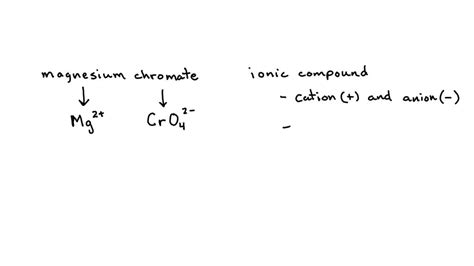 magnesium chromate
Mg²⁺ CrO₄²⁻
ionic compound
- cation (+) and anion (-)
-